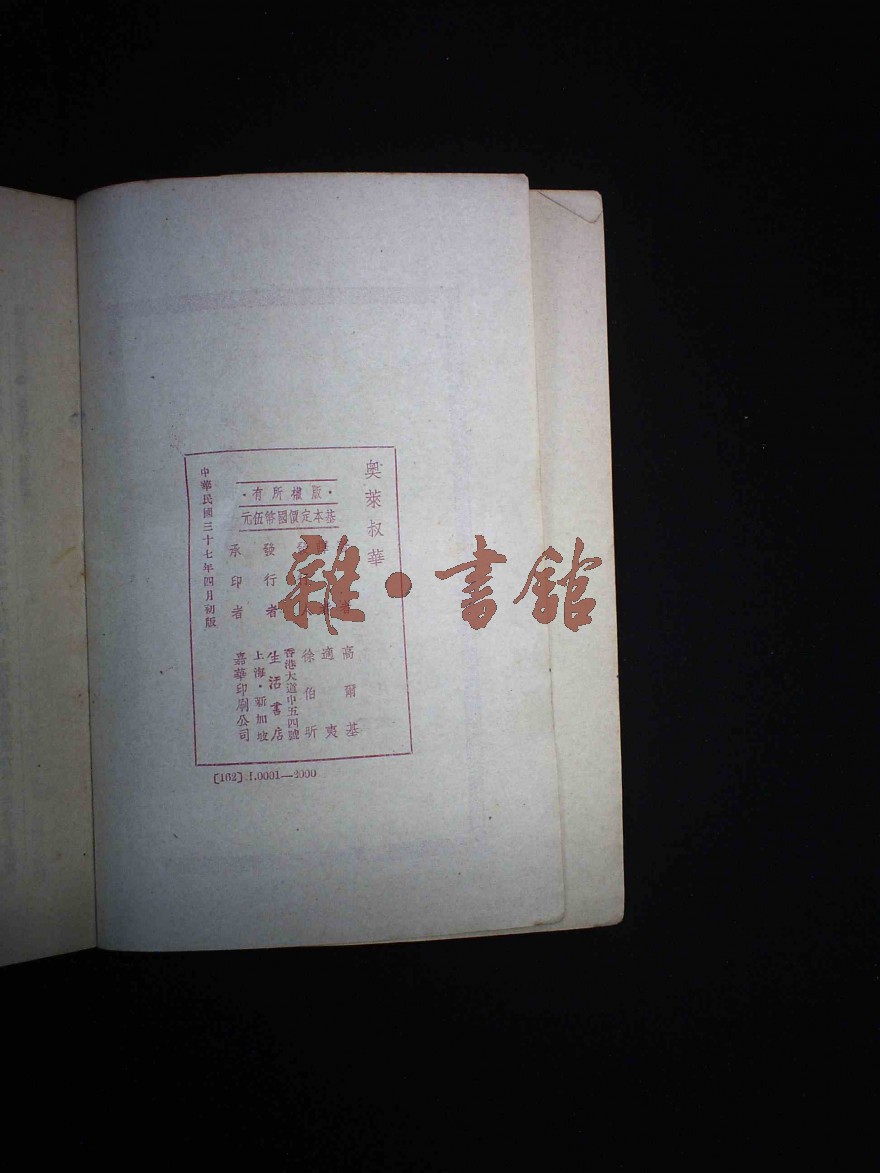 奧萊叔華
著 高爾基
適夷
徐伯昕
香港大道中五四號
發行者 生活書店
上海·新加坡
承印者 嘉華印刷公司
·版權所有·
基本定價國幣伍元
中華民國三十七年四月初版
[162]
0001—2000
雜·書館